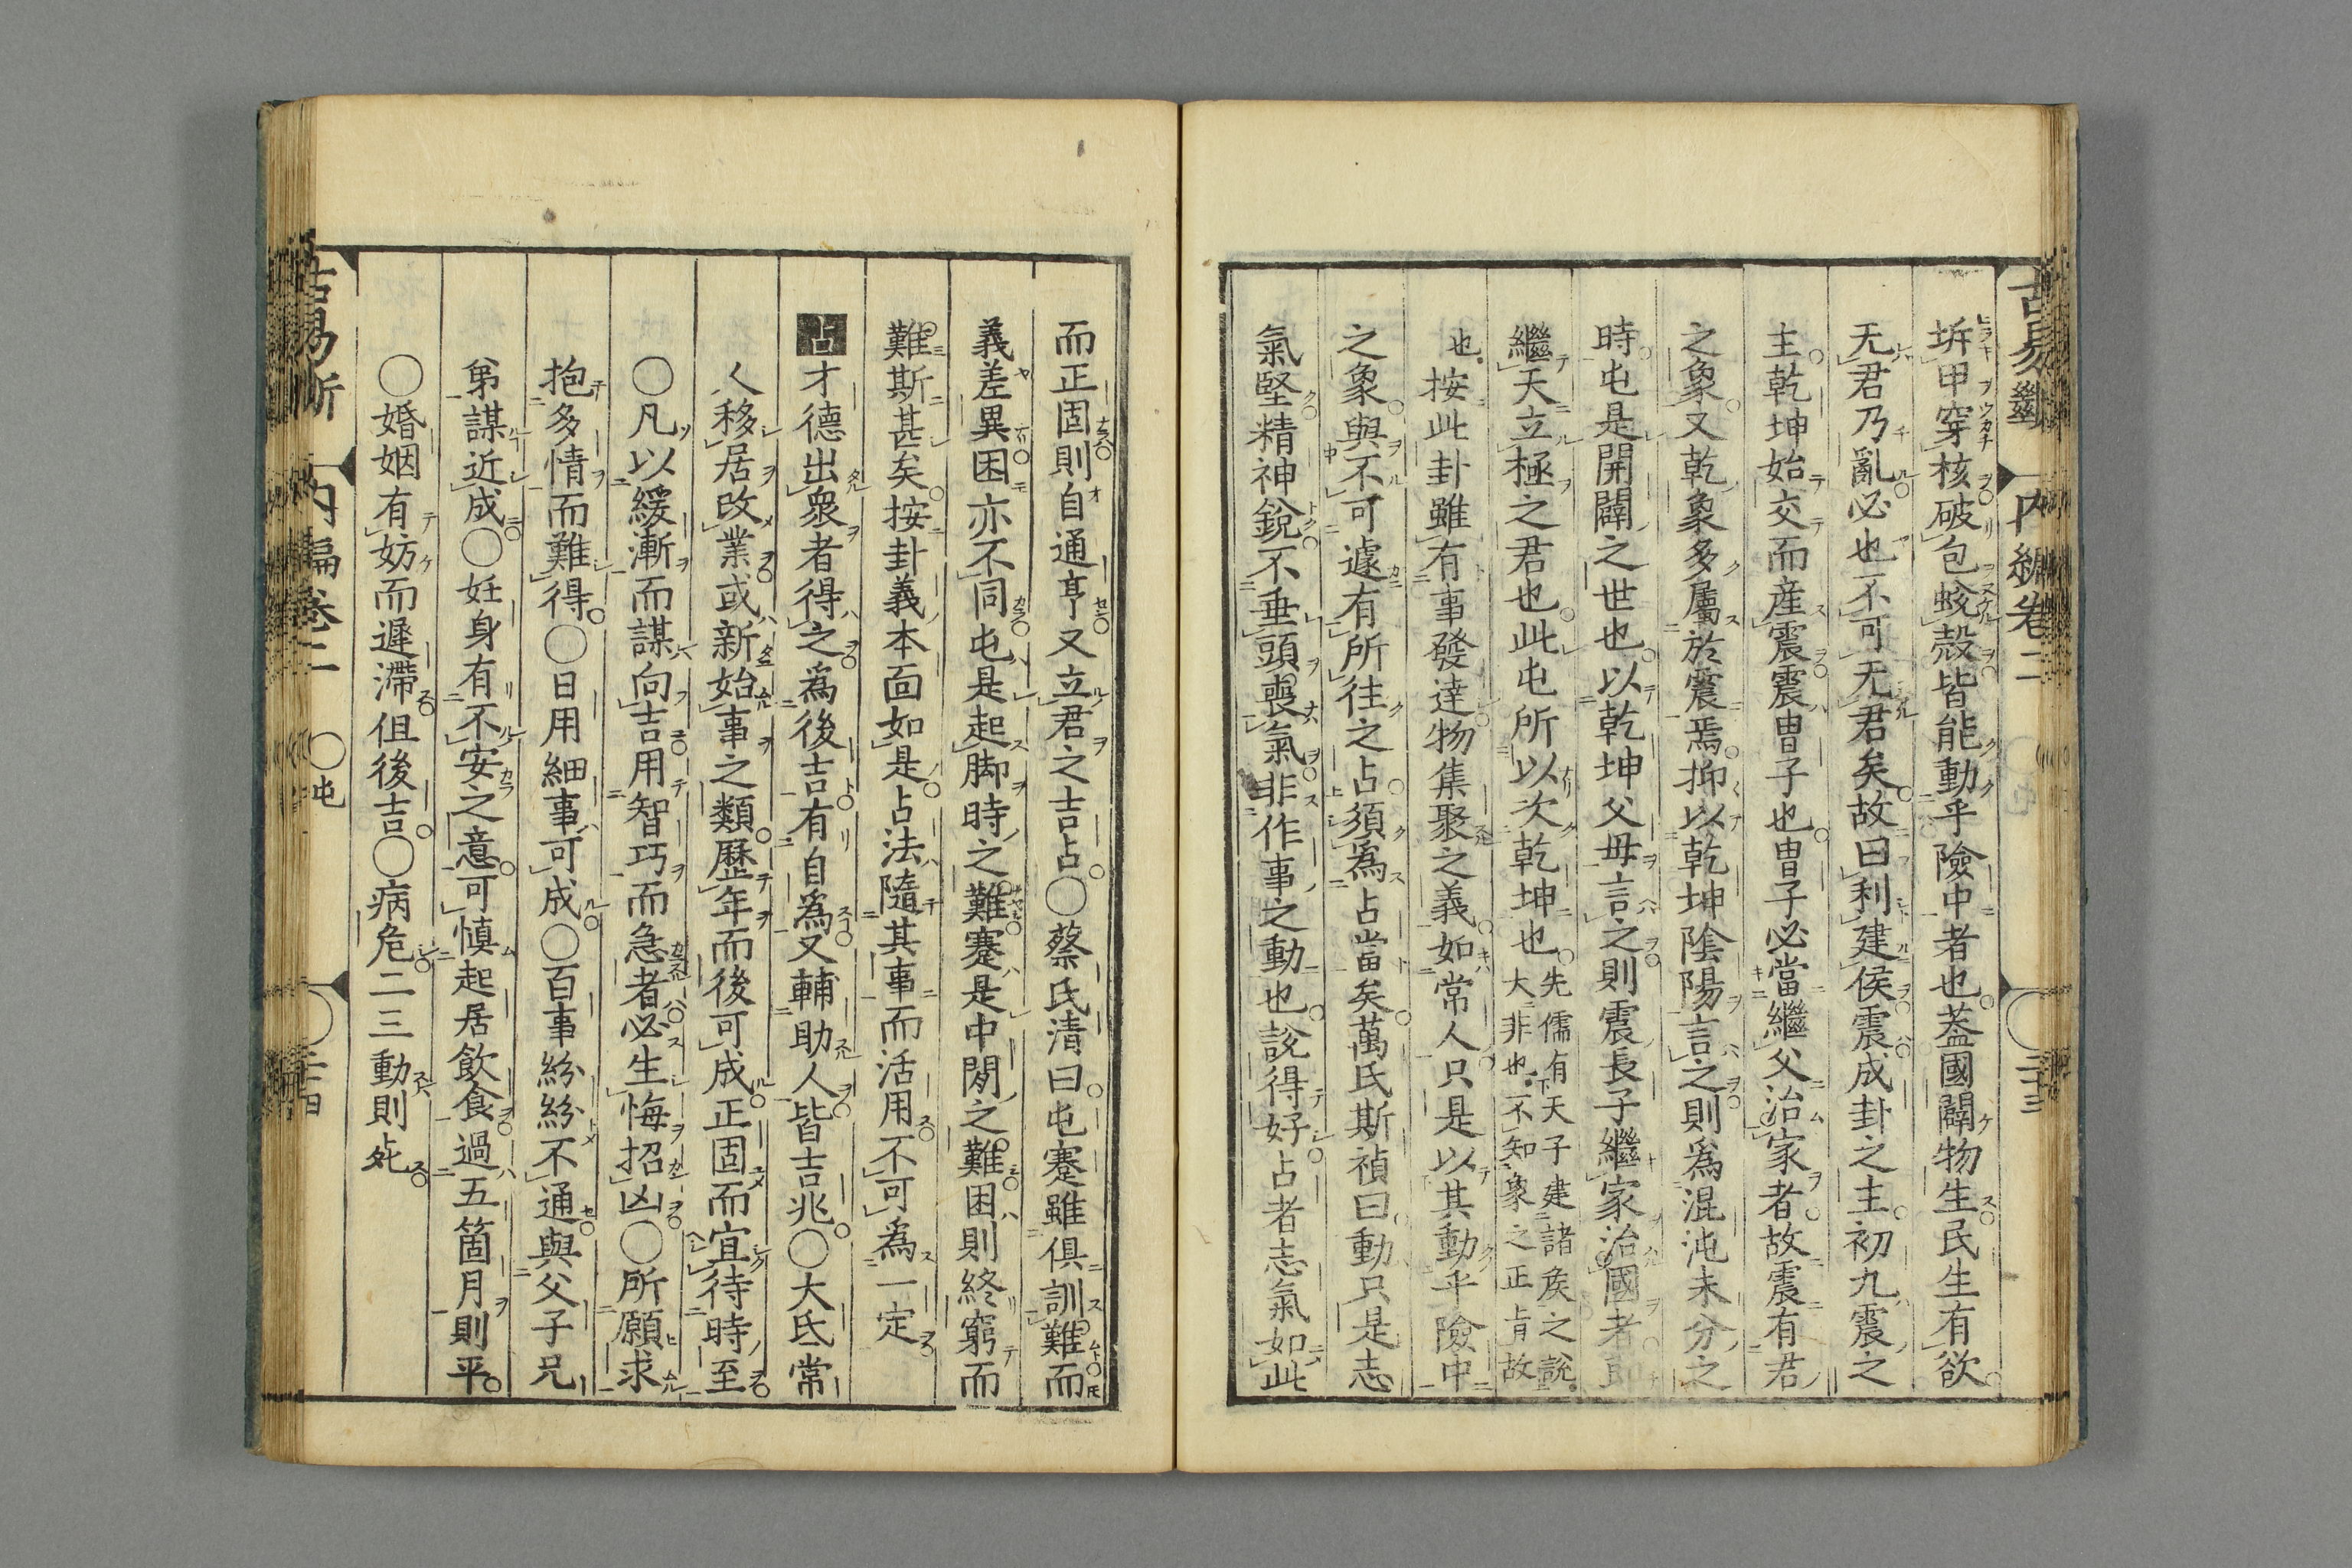 古易斷　內編卷二
坼甲穿核破包蛻殼皆能動乎險中者也葢國闢物生民生有欲
无君乃亂必也不可无君矣故曰利建侯震成卦之主初九震之
主乾坤始交而産震震曽子也曽子必當繼父治家者故震有君
之象又乾象多屬於震焉抑以乾坤陰陽言之則爲混沌未分之
時屯是開闢之世也以乾坤父毋言之則震長子繼家治國者
繼天立極之君也此屯所以次乾坤也先儒有天子建諸矦之說
大非也不知象之正肯故
也按此卦雖有事發達物集聚之義如常人只是以其動乎險中
之象與不可遽有所往之占須爲占當矣萬氏斯禎曰動只是志
氣堅精神銳不垂頭喪氣非作事之動也說得好占者志氣如此
而正固則自通亨又立君之吉占○蔡氏清曰屯蹇雖俱訓難而
義差異困亦不同屯是起脚時之難蹇是中間之難困則終窮而
難斯甚矣按卦義本面如是占法隨其事而活用不可爲一定
占才德出衆者得之爲後吉有自爲又輔助人皆吉兆○大氐常
人移居改業或新始事之類歷年而後可成正固而宜待時至
○凡以緩漸而謀向吉用智巧而急者必生悔招凶○所願求
抱多情而難得○日用細事可成○百事紛紛不通與父子兄
第謀近成○妊身有不安之意可愼起居飲食過五箇月則平
○婚姻有妨而遲滯但後吉○病危二三動則死
古易斷　內編卷二　○屯